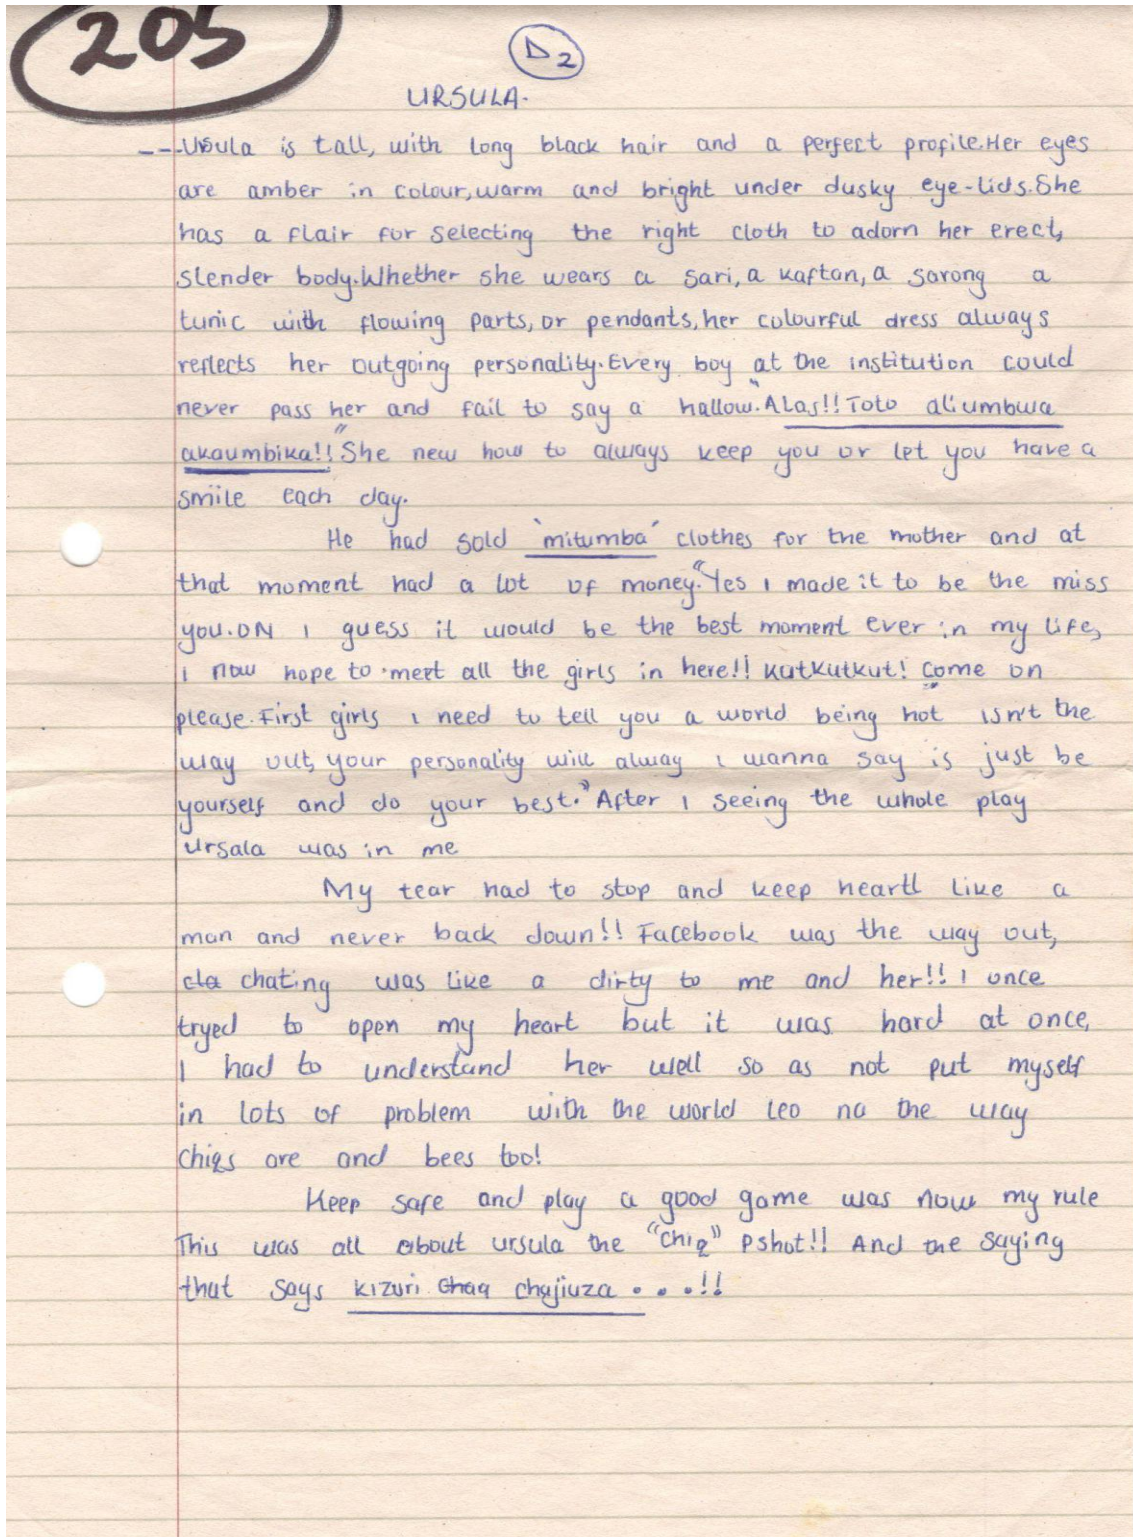 205
D2
URSULA.
---Ursula is tall, with long black hair and a perfect profile.Her eyes
are amber in colour,warm and bright under dusky eye-lids.She
has a flair for selecting the right cloth to adorn her erect,
slender body.Whether she wears a sari, a kaftan, a sarong a
tunic with flowing parts, or pendants, her colourful dress always
reflects her outgoing personality.Every boy at the institution could
never pass her and fail to say a hallow."ALas!! Toto aliumbwa
akaumbika!!" She new how to always keep you or let you have a
smile each day.
He had sold 'mitumba' clothes for the mother and at
that moment had a lot of money."Yes I made it to be the miss
you.ON I guess it would be the best moment ever in my life,
i now hope to meet all the girls in here!! Kutkutkut! Come on
please.First girls i need to tell you a world being hot isn't the
way out, your personality will alway i wanna say is just be
yourself and do your best." After I seeing the whole play
ursala was in me
My tear had to stop and keep heartl like a
man and never back down!! Facebook was the way out,
cla chating was like a dirty to me and her!! I once
tryed to open my heart but it was hard at once,
I had to understand her well so as not put myself
in lots of problem with the world leo na the way
Chiqs are and bees too!
Keep safe and play a good game was now my rule
This was all about ursula the "Chiq" Pshut!! And the saying
that says kizuri Chaq chajiuza . . .!!